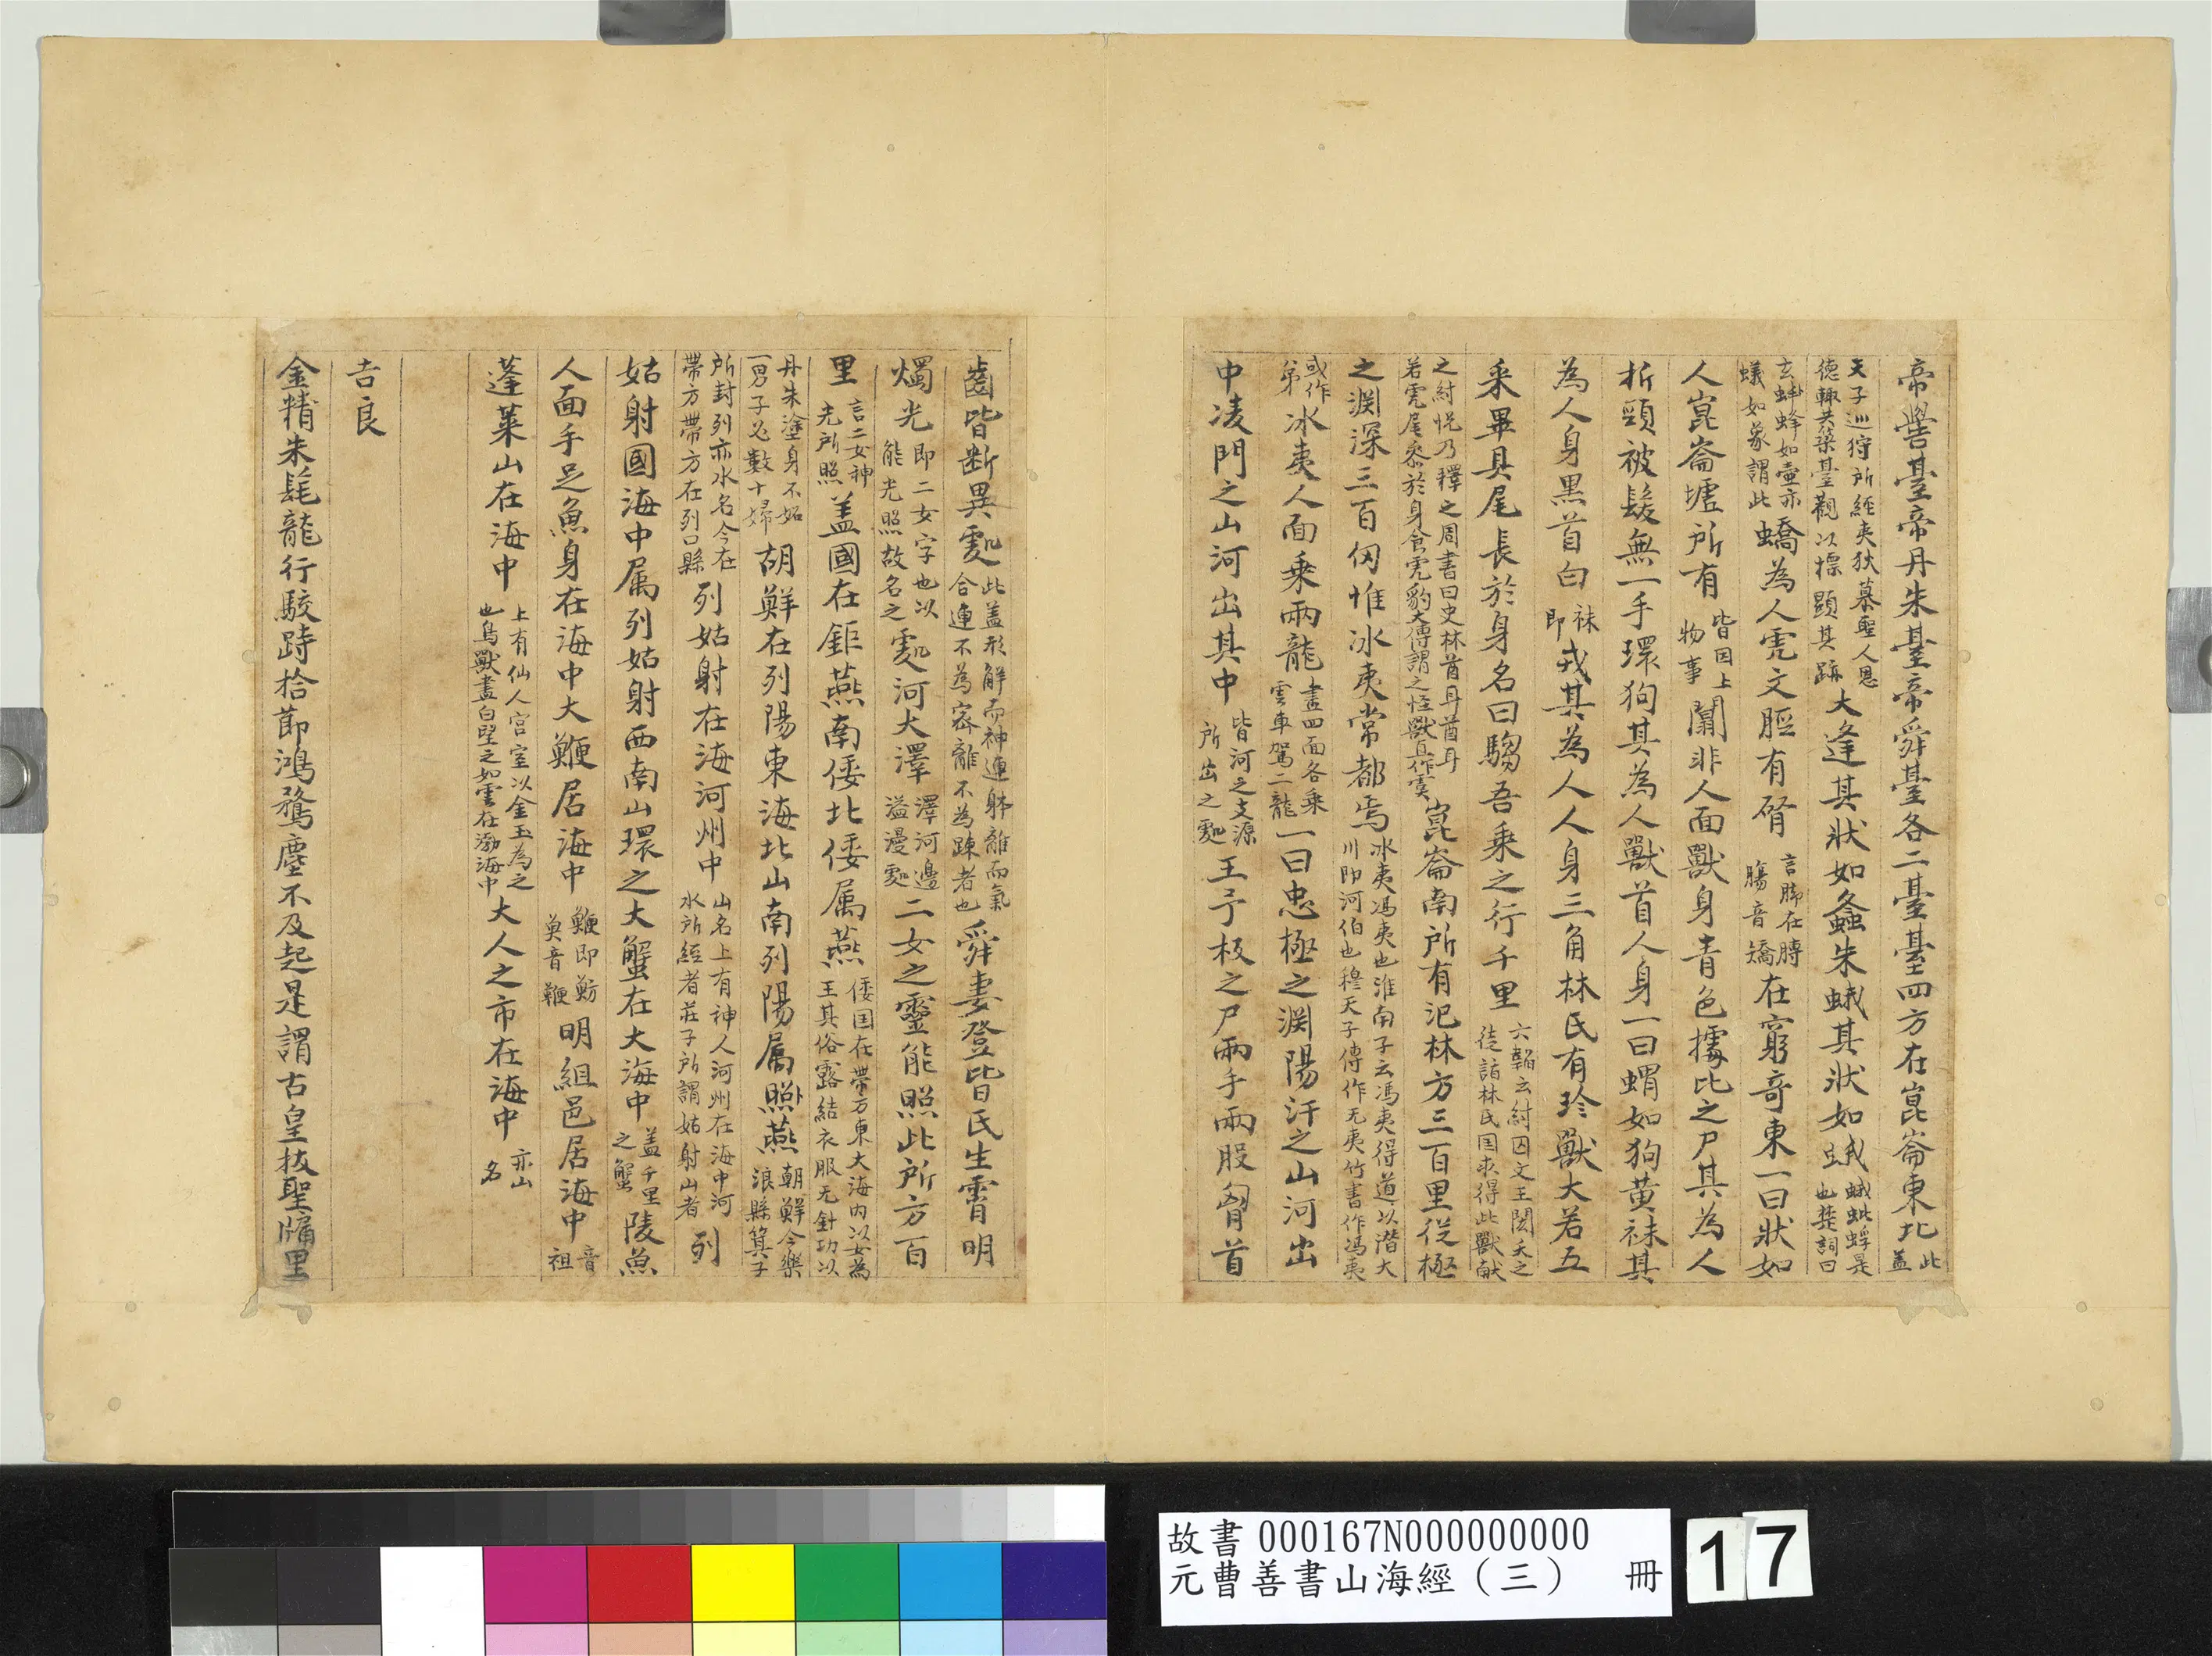 帝嚳臺帝丹朱臺帝舜臺各二臺臺四方在崑崙東北此蓋
天子巡狩所經夷狄慕聖人恩德輒共築臺觀以標顯其跡大逢其狀如螽朱蛾其狀如蛾蛾蚍蜉是也楚詞曰
玄蜂如壺赤蟻如象謂此蟜為人虎文脛有䏿言脚在膊腸音矯在窮竒東一曰狀如
人崑崙墟所有皆因上物事闒非人面獸身青色據比之尸其為人
折頸被髮無一手環狗其為人獸首人身一曰蝟如狗黃袜其
為人身黑首白袜即戎其為人人身三角林氏有珍獸大若五
采畢具尾長於身名曰騶吾乘之行千里六韜云紂囚文王閎夭之徒詣林氏国求得此獸献
之紂悦乃釋之周書曰史林酋耳酋耳若虎尾參於身食虎豹大傳謂之怪獸宜作虞崑崙南所有汜林方三百里從極
之渊深三百仞惟冰夷常都焉冰夷馮夷也淮南子云馮夷得道以潜大川即河伯也穆天子傳作无夷竹書作馮夷
或作冰夷人面乘兩龍畫四面各乘雲車駕二龍一曰忠極之渊陽汙之山河出
中凌門之山河出其中皆河之支源所出之䖏王子极之尸兩手兩股匈首
齒皆断異䖏此盖形解而神連躰離而氣合連不為宻離不為踈者也舜妻登皆氏生霄明
燭光即二女字也以能光照故名之䖏河大澤澤河邊溢漫䖏二女之靈能照此所方百
里言二女神光所照盖國在鉅燕南倭北倭属燕倭国在帶方東大海内以女為王其俗露結衣服无針功以
丹朱塗身不妬一男子必數十婦胡鮮在列陽東海北山南列陽属燕朝鮮今樂浪縣箕子
所封列亦水名今在帶方帶方在列口縣列姑射在海河州中山名上有神人河州在海中河水所經者莊子所謂姑射山者列
姑射國海中属列姑射西南山環之大蟹在大海中盖千里之蟹陵魚
人面手足魚身在海中大鯾居海中鯾即魴奠音鞭明組邑居海中音祖
蓬莱山在海中上有仙人宫室以金玉為之也鳥獸盡白望之如雲在渤海中大人之市在海中亦山名
吉良
金精朱髦龍行駮跱拾節鴻騖塵不及起是謂古皇抜聖牖里
故書 000167N000000000
元曹善書山海經（三） 冊
17